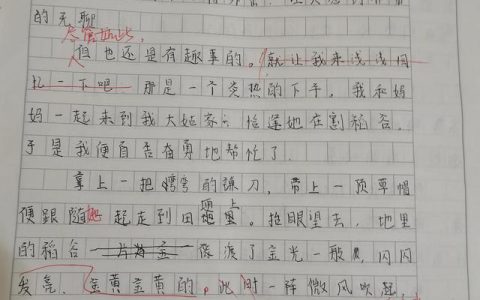 的无聊
尽管如此，
但也还是有趣事的。就让我来浅浅回
忆一下吧 那是一个炎热的下午。我和妈
妈一起来到我大姑家，恰逢她在割稻谷，
于是我便自告奋勇地帮忙了．
拿上一把弯弯的镰刀，带上一顶草帽
便跟随她一起走到田边上。抬眼望去，地里
的稻谷 像渡了金光一般，闪闪
发亮．金黄金黄的。此时一阵微风吹起，